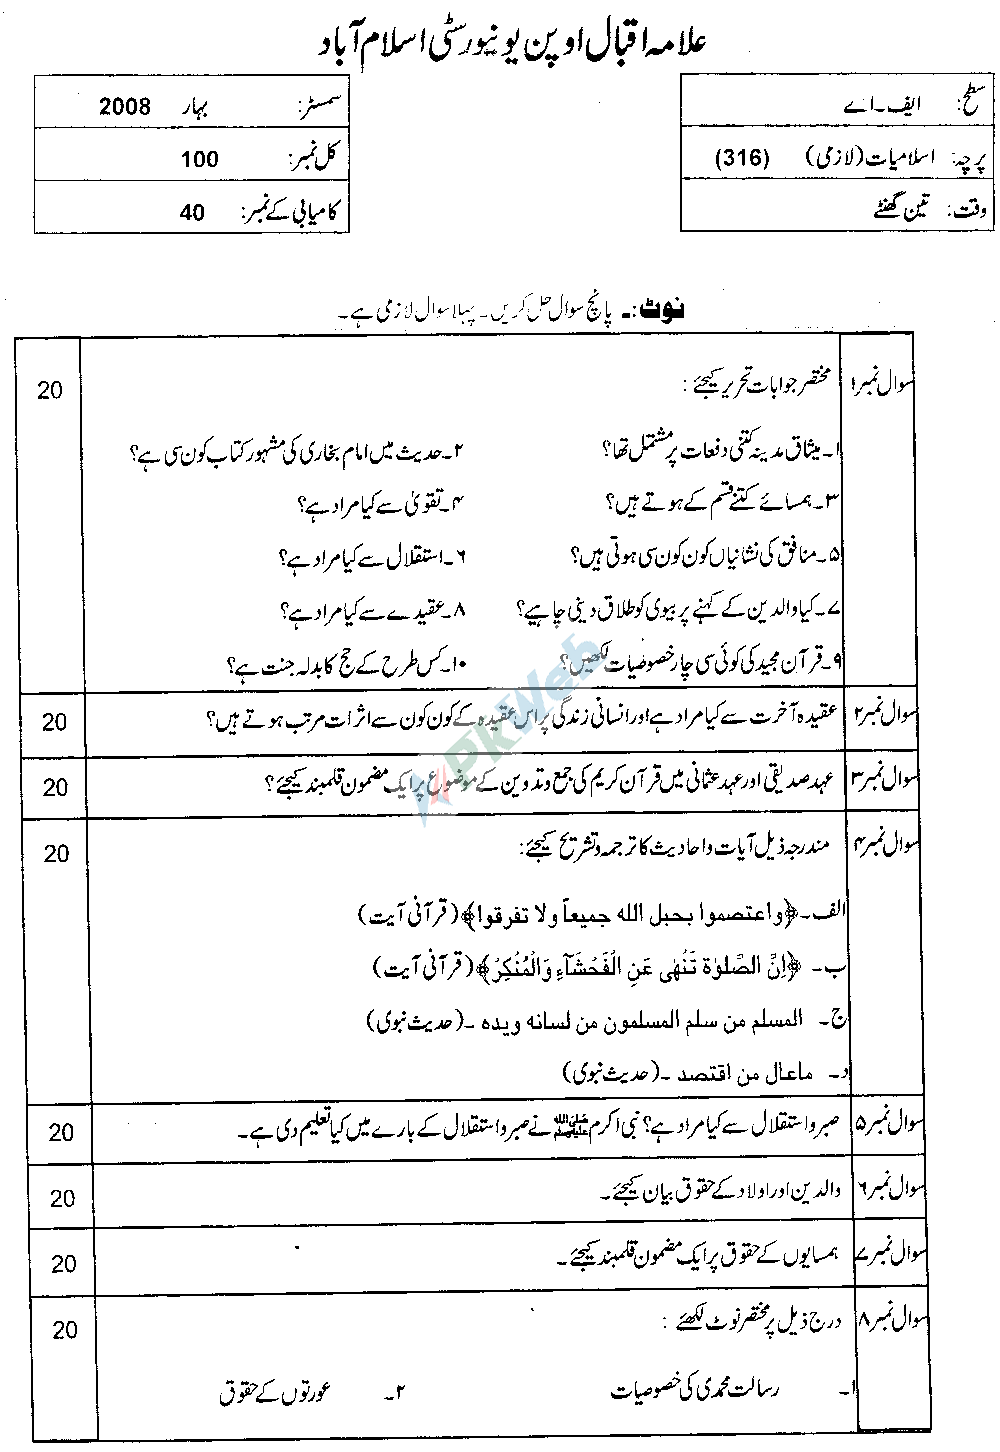 علامہ اقبال اوپن یونیورسٹی اسلام آباد
سطح: ایف۔اے
پرچہ: اسلامیات (لازمی) (316)
وقت: تین گھنٹے
سمسٹر: بہار 2008
کل نمبر: 100
کامیابی کے نمبر: 40
نوٹ:۔ پانچ سوال حل کریں۔ پہلا سوال لازمی ہے۔
سوال نمبر۱ مختصر جوابات تحریر کیجئے: 20
۱۔ میثاق مدینہ کتنی دفعات پر مشتمل تھا؟ ۲۔ حدیث میں امام بخاری کی مشہور کتاب کون سی ہے؟
۳۔ ہمسائے کتنے قسم کے ہوتے ہیں؟ ۴۔ تقویٰ سے کیا مراد ہے؟
۵۔ منافق کی نشانیاں کون کون سی ہوتی ہیں؟ ۶۔ استقلال سے کیا مراد ہے؟
۷۔ کیا والدین کے کہنے پر بیوی کو طلاق دینی چاہیے؟ ۸۔ عقیدے سے کیا مراد ہے؟
۹۔ قرآن مجید کی کوئی سی چار خصوصیات لکھیں؟ ۱۰۔ کس طرح کے حج کا بدلہ جنت ہے؟
سوال نمبر۲ عقیدہ آخرت سے کیا مراد ہے اور انسانی زندگی پر اس عقیدہ کے کون کون سے اثرات مرتب ہوتے ہیں؟ 20
سوال نمبر۳ عہد صدیقی اور عہد عثمانی میں قرآن کریم کی جمع و تدوین کے موضوع پر ایک مضمون قلمبند کیجئے؟ 20
سوال نمبر۴ مندرجہ ذیل آیات و احادیث کا ترجمہ و تشریح کیجئے: 20
الف۔ ﴿واعتصموا بحبل الله جميعاً ولا تفرقوا﴾ (قرآنی آیت)
ب۔ ﴿اِنَّ الصَّلوٰة تَنْهٰى عَنِ الْفَحْشَآءِ وَالْمُنْكِرُ﴾ (قرآنی آیت)
ج۔ المسلم من سلم المسلمون من لسانه ويده ۔ (حدیث نبوی)
د۔ ماعال من اقتصد ۔ (حدیث نبوی)
سوال نمبر۵ صبر و استقلال سے کیا مراد ہے؟ نبی اکرم ﷺ نے صبر و استقلال کے بارے میں کیا تعلیم دی ہے۔ 20
سوال نمبر۶ والدین اور اولاد کے حقوق بیان کیجئے۔ 20
سوال نمبر۷ ہمسایوں کے حقوق پر ایک مضمون قلمبند کیجئے۔ 20
سوال نمبر۸ درج ذیل پر مختصر نوٹ لکھئے: 20
۱۔ رسالت محمدی کی خصوصیات ۲۔ عورتوں کے حقوق
PKWeb